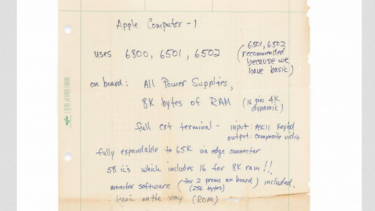 Apple Computer-1
uses 6800, 6501, 6502 (6501, 6502 recommended because we have basic)
on board: All Power Supplies,
8K bytes of RAM (16 pin 4K dynamic)
full crt terminal - input ASCII Keybd
output: composite video
fully expandable to 65K via edge connector
58 ic's which includes 16 for 8K ram!!
monitor software (for 2 proms on board) included.
(256 bytes)
basic on the way (ROM)